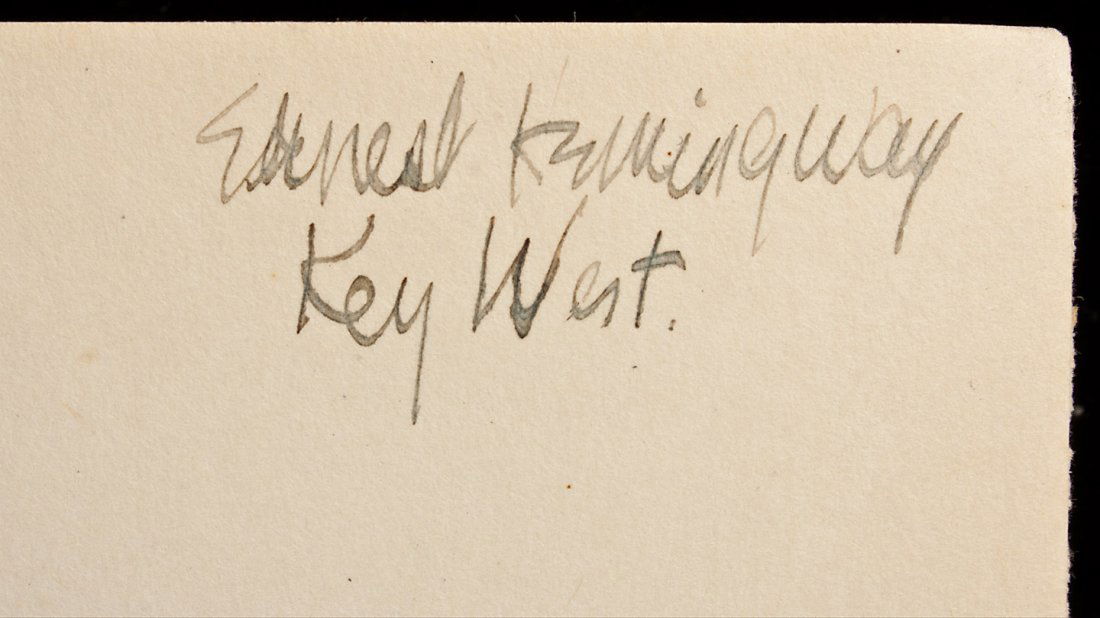 Ernest Hemingway
Key West.